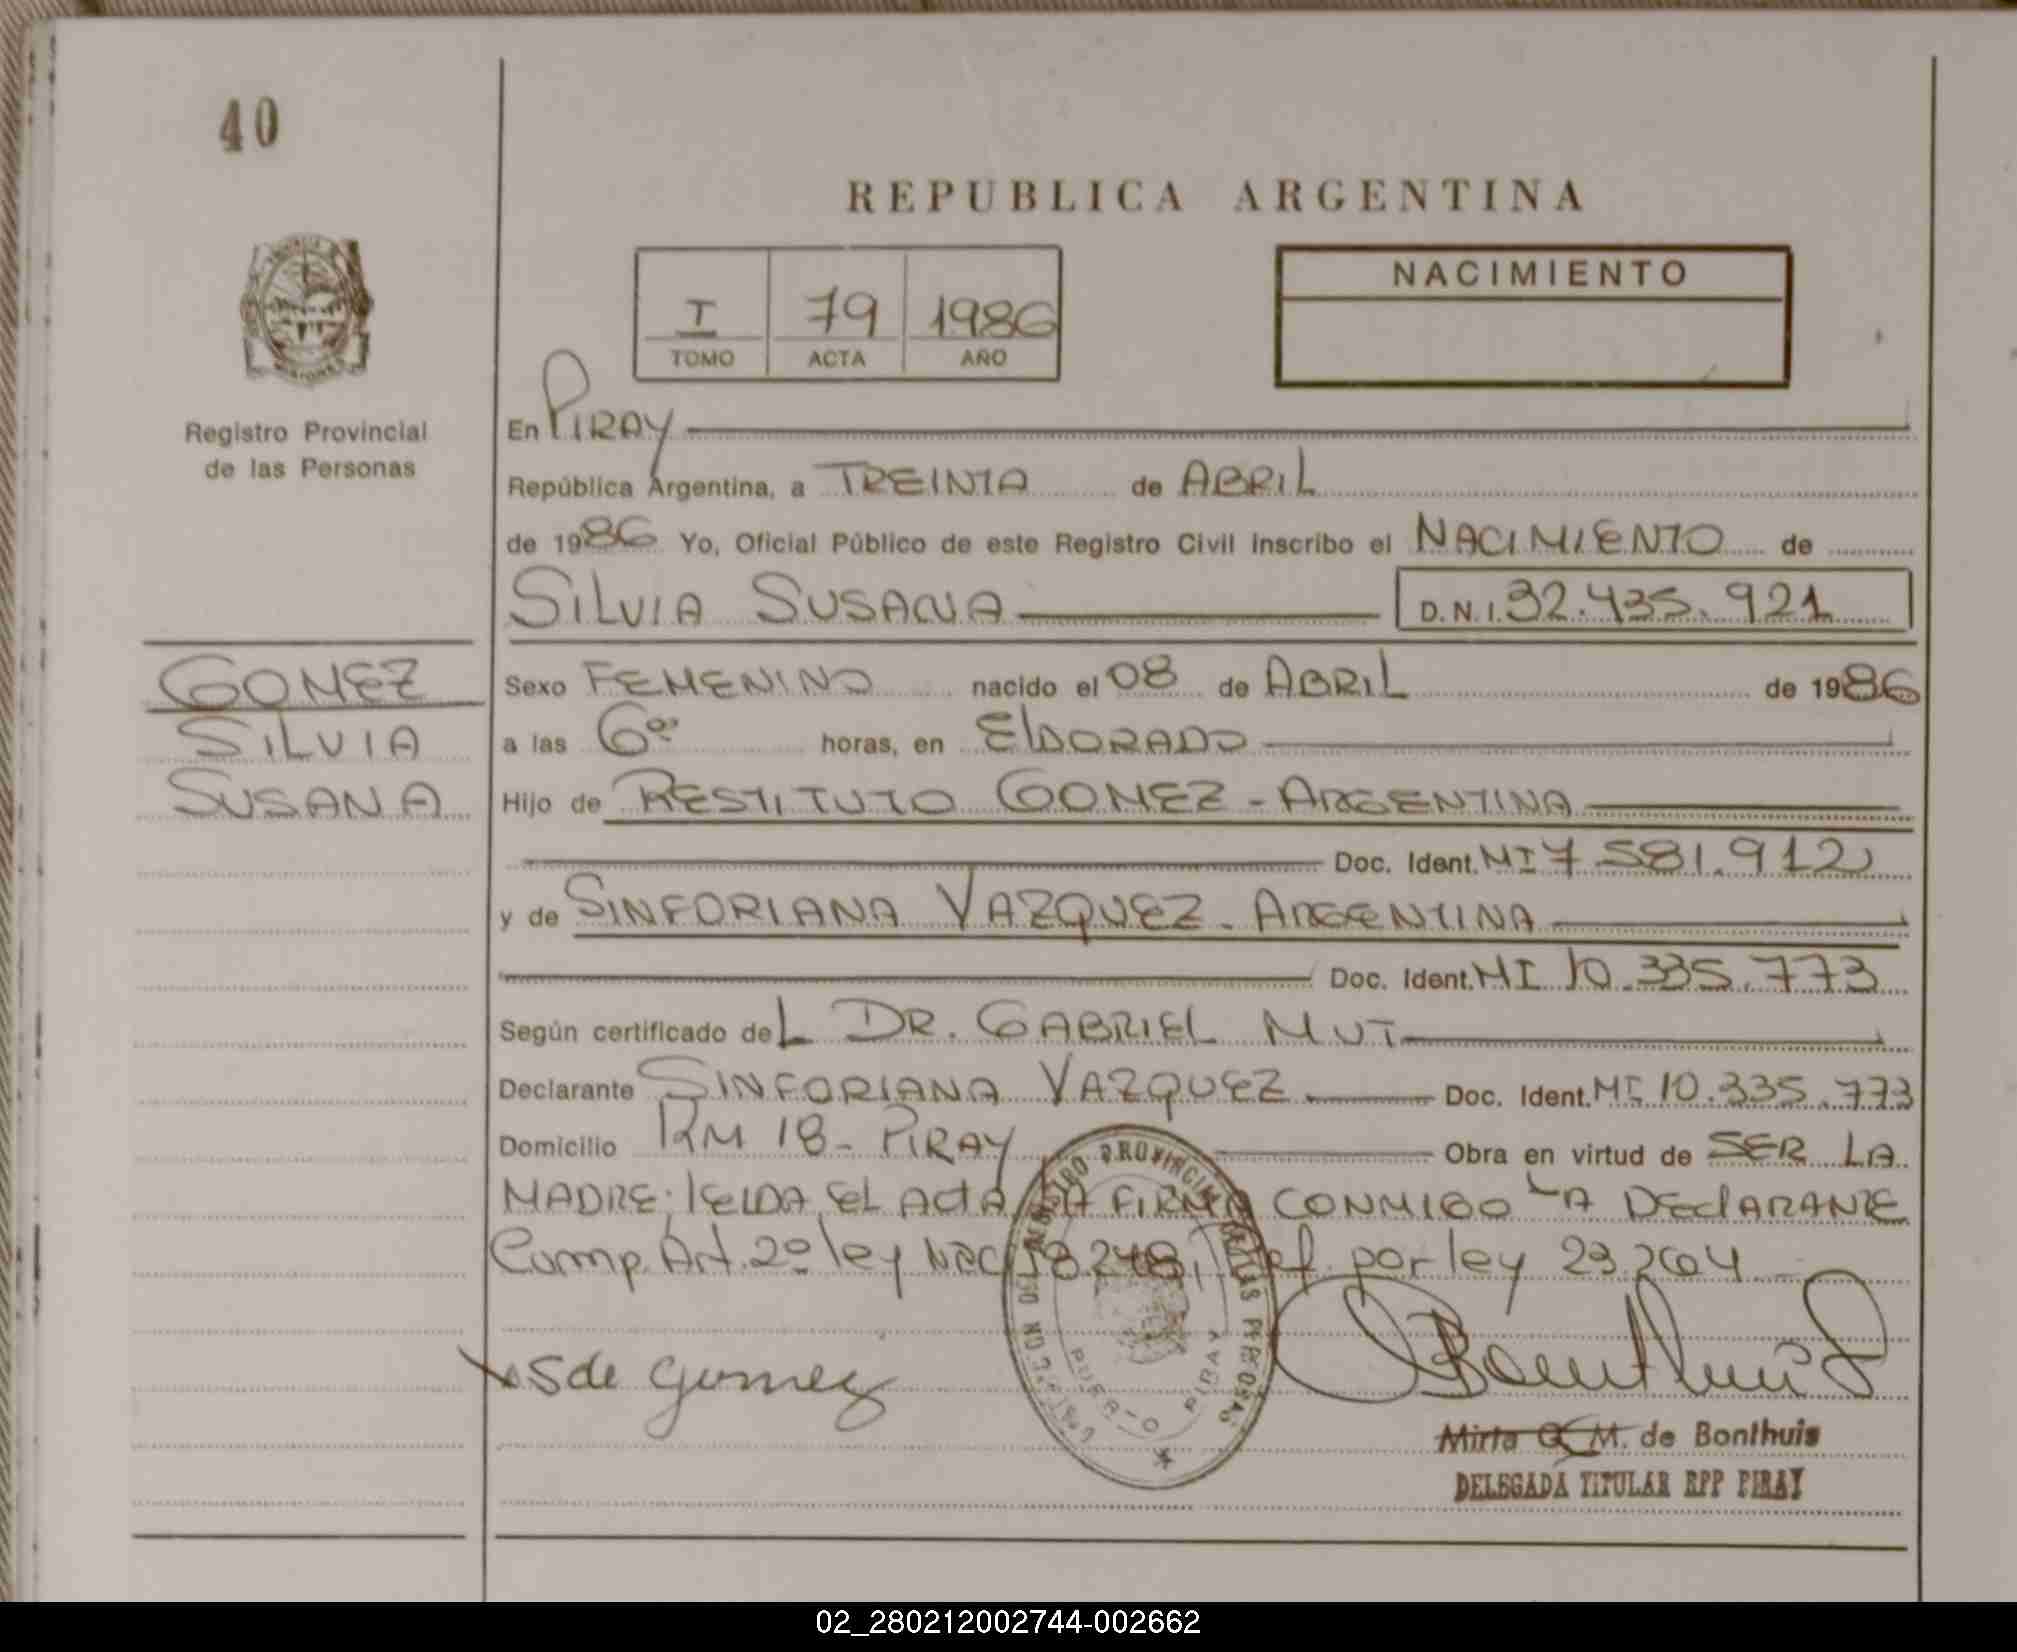 40
REPUBLICA ARGENTINA
I 79 1986
TOMO ACTA AÑO
NACIMIENTO
Registro Provincial
de las Personas
En PIRAY
República Argentina, a TREINTA de ABRIL
de 1986 Yo, Oficial Público de este Registro Civil inscribo el NACIMIENTO de
SILVIA SUSANA D.N.I. 32.435.921
GOMEZ
SILVIA
SUSANA
Sexo FEMENINO nacido el 08 de ABRIL de 1986
a las 6 horas, en ELDORADO
Hijo de RESTITUTO GOMEZ - ARGENTINA
Doc. Ident. MI 7.581.912
y de SINFORIANA VAZQUEZ - ARGENTINA
Doc. Ident. MI 10.335.773
Según certificado deL DR. GABRIEL MUT
Declarante SINFORIANA VAZQUEZ Doc. Ident. MI 10.335.773
Domicilio KM 18 - PIRAY Obra en virtud de SER LA
MADRE; LEIDA EL ACTA LA FIRMA CONMIGO LA DECLARANTE
Comp. Art. 2º ley NRO 18.248, Mef. por ley 23.264
S de Gomez
PUERTO PIRAY
Mirta G. M. de Bonthuis
DELEGADA TITULAR RPP PIRAY
02_280212002744-002662